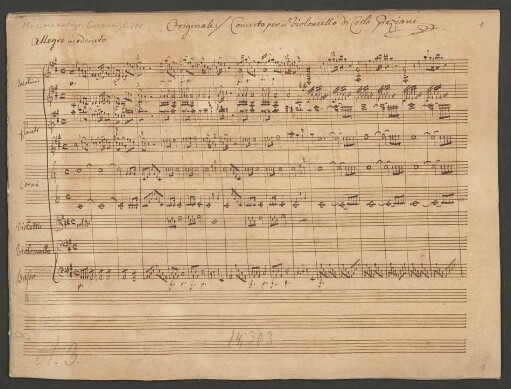 Mus. ms. autogr. Graziani, C. 
Originale / Concerto per il Violoncello di Carlo Graziani
1
Allegro moderato
Violini
Flauti
Corni
Violetta
Violoncello
Basso
p. f. p. f.
14,303
N. 3.